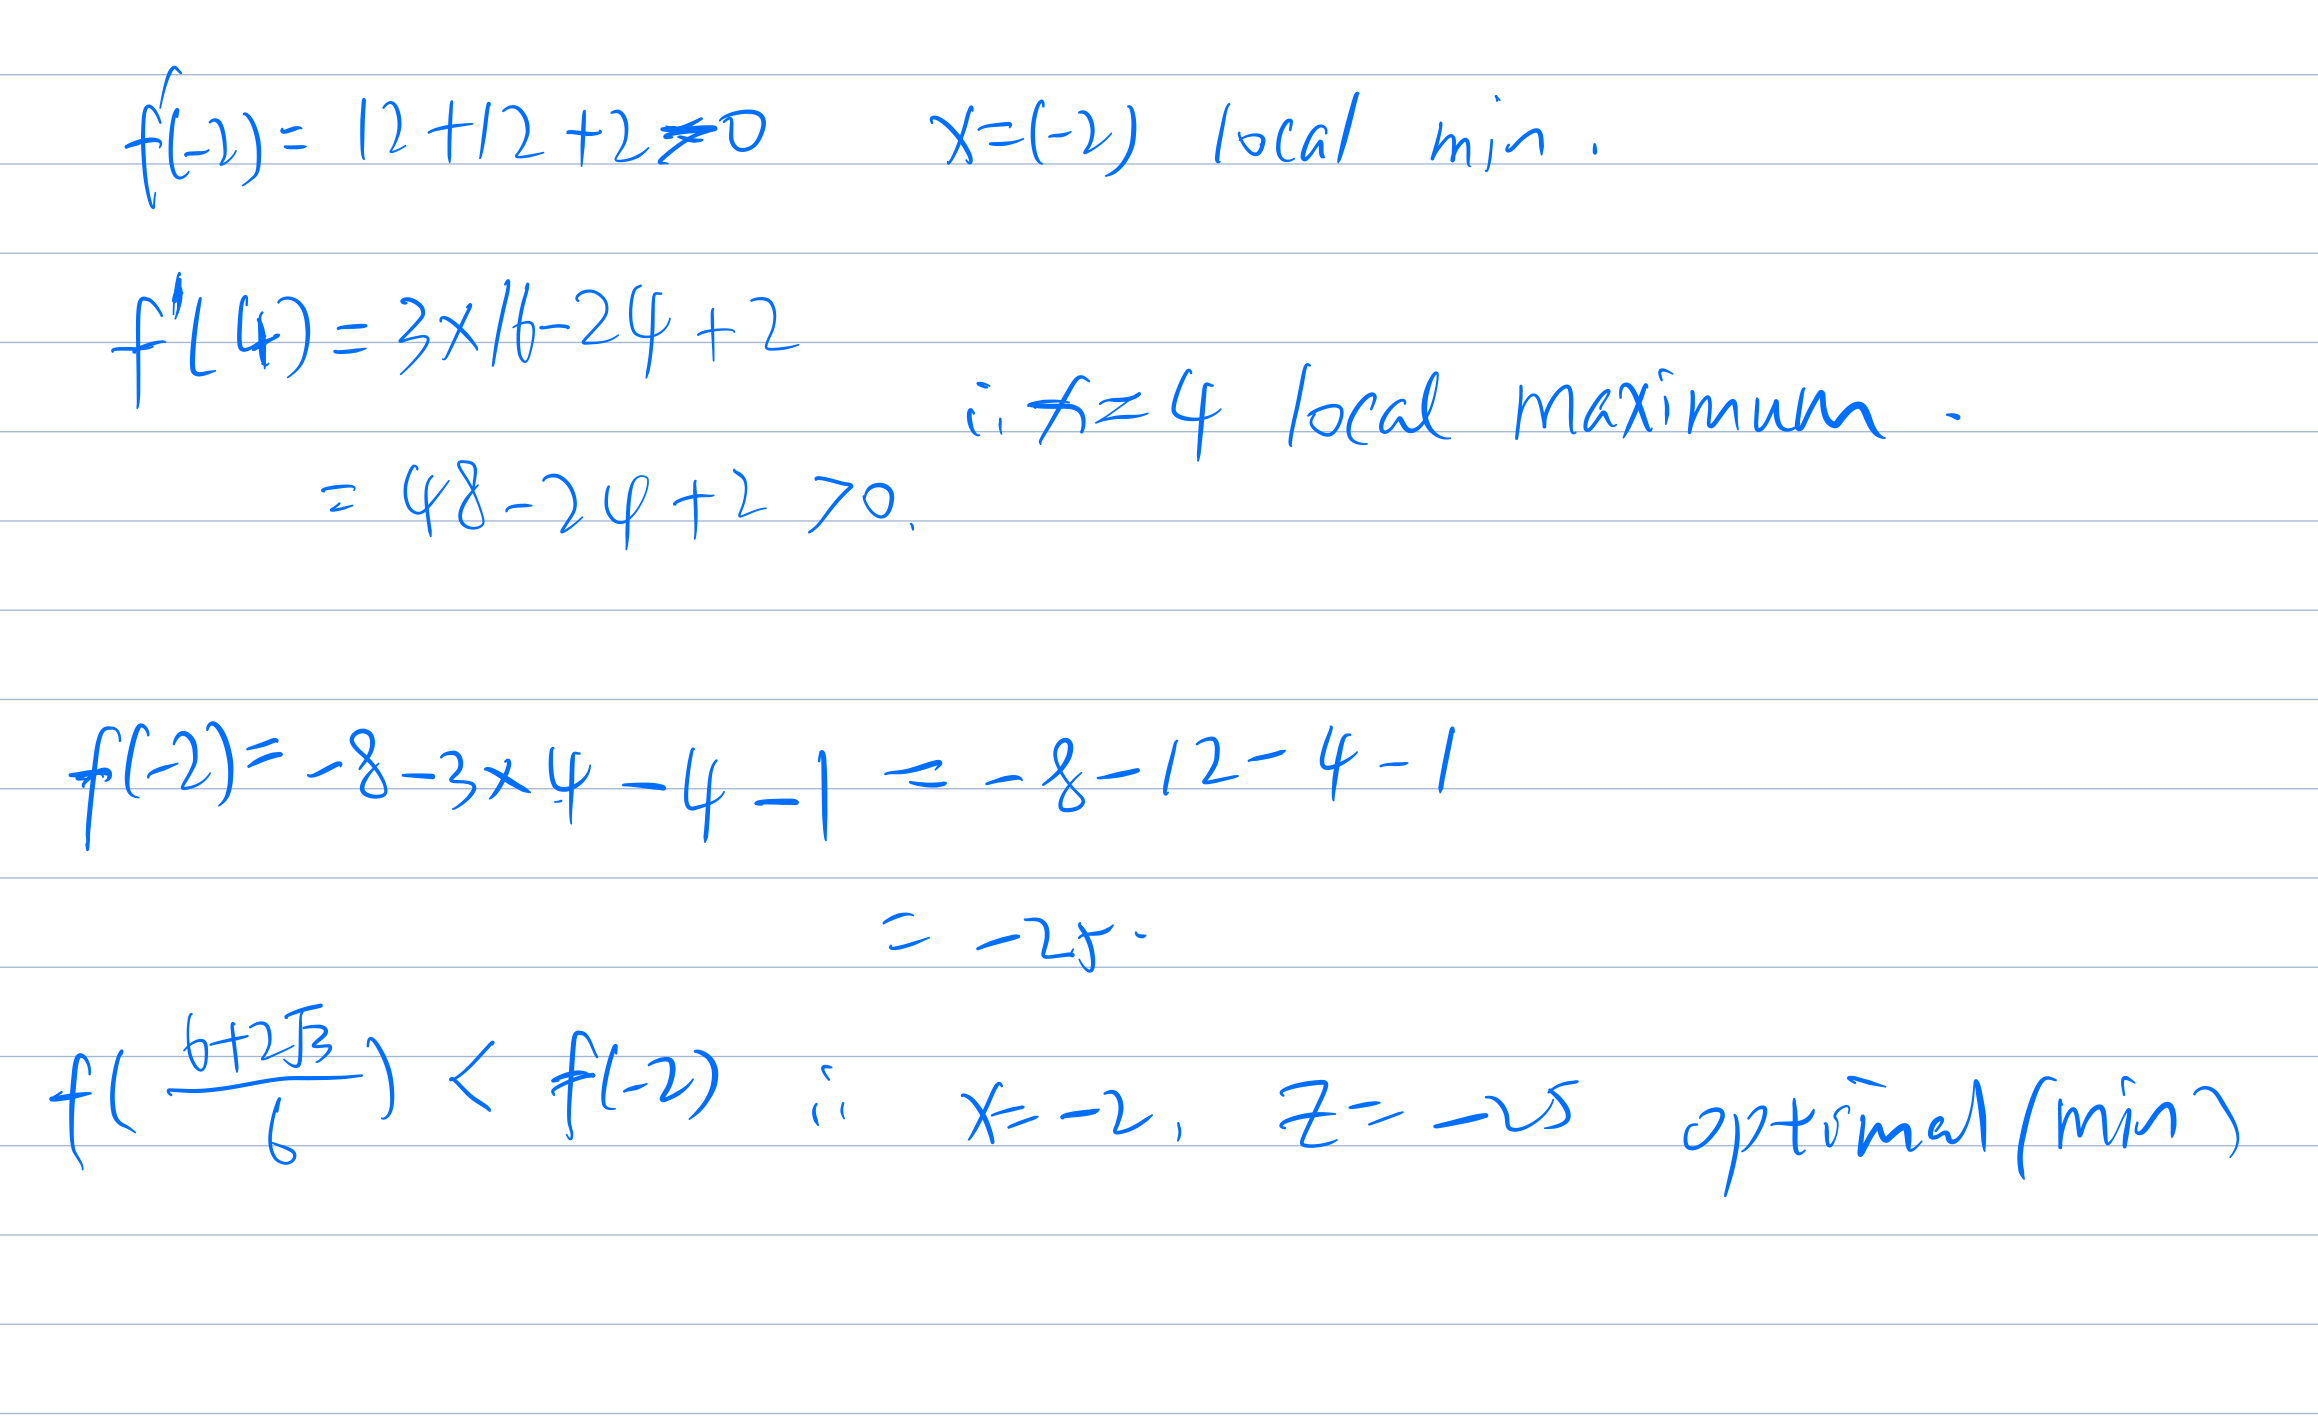 f'(-2) = 12 + 12 + 2 > 0 x = (-2) local min.
f'(4) = 3×16 - 24 + 2
∴ x = 4 local maximum.
= 48 - 24 + 2 > 0.
f(-2) = -8 - 3×4 - 4 - 1 = -8 - 12 - 4 - 1
= -25.
f((6+2√3)/6) < f(-2) ∴ x = -2, z = -25 optimal (min)